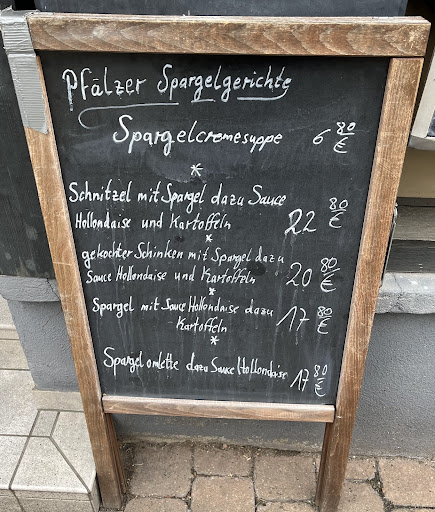 Pfälzer Spargelgerichte
Spargelcremesuppe 6 80 €
*
Schnitzel mit Spargel dazu Sauce
Hollondaise und Kartoffeln 22 80 €
*
gekochter Schinken mit Spargel dazu
Sauce Hollondaise und Kartoffeln 20 80 €
*
Spargel mit Sauce Hollondaise dazu
Kartoffeln 17 80 €
*
Spargel omlette dazu Sauce Hollondaise 17 80 €